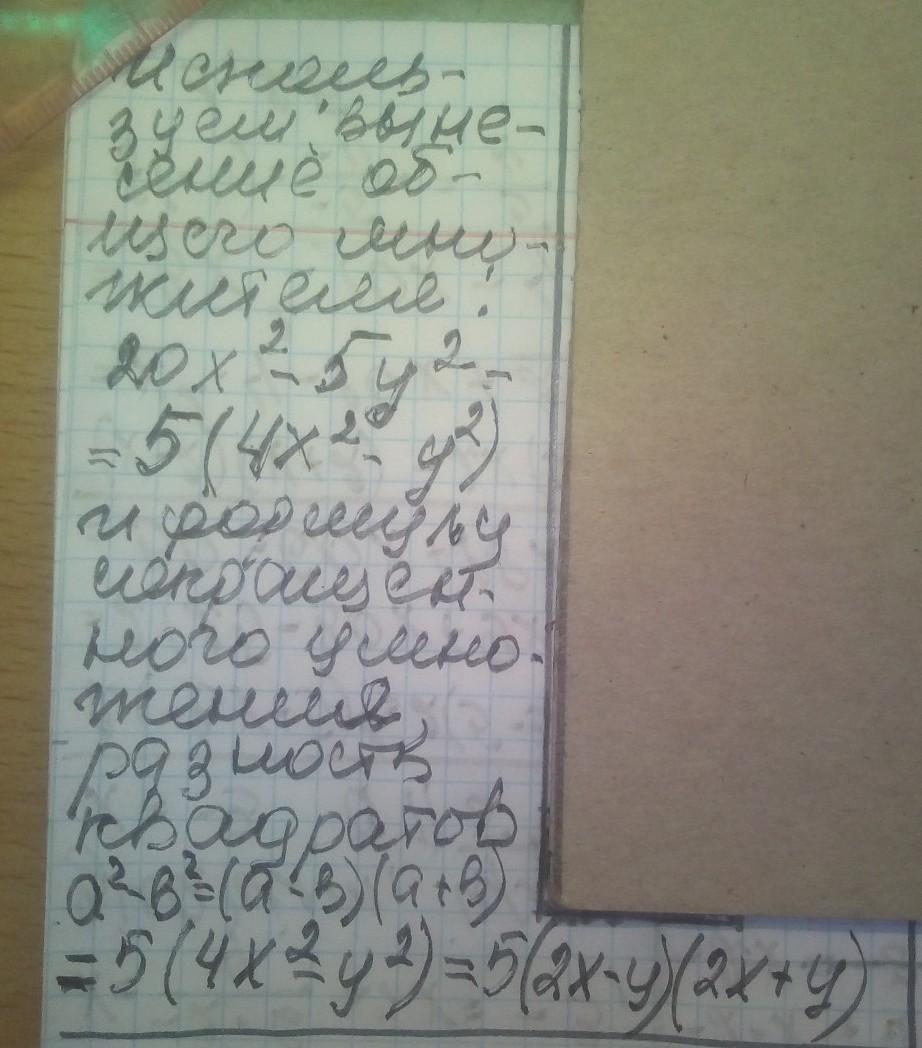 исполь-
зуем выне-
сение об-
щего мно-
жителя:
20x² - 5y² =
= 5(4x² - y²)
и формулу
сокращен-
ного умно-
жения,
разность
квадратов
a² - b² = (a - b)(a + b)
= 5(4x² - y²) = 5(2x - y)(2x + y)